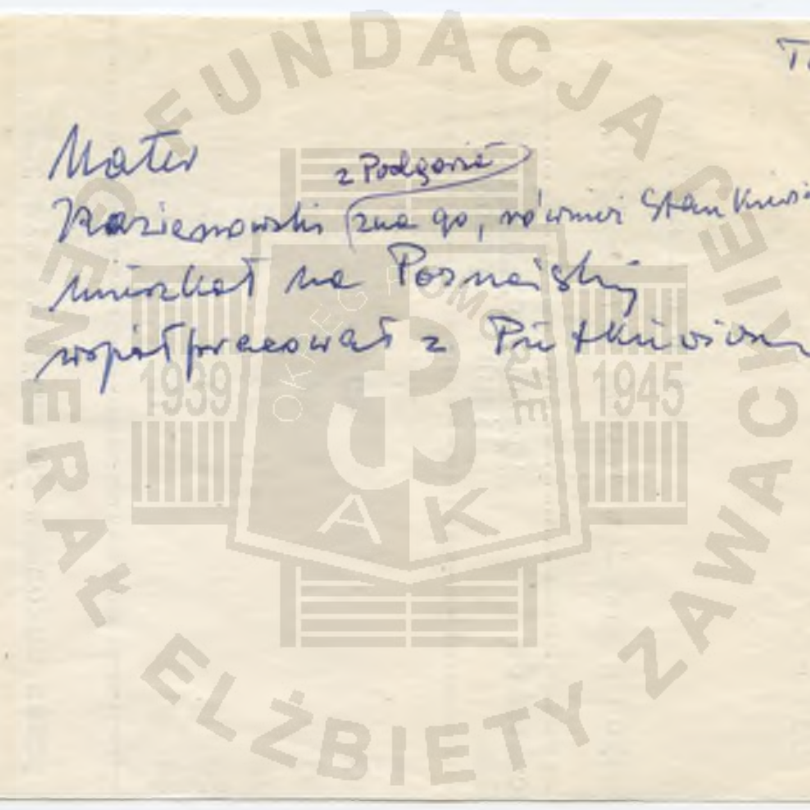 T
Mater
z Podgórza
Kazienowski zna go, również Stankiewi
mieszkał na Poznańskiej
współpracował z Pietkiewiczem
FUNDACJA
GENERAŁ ELŻBIETY ZAWACKIEJ
OKRĘG POMORZE
1939
1945
AK